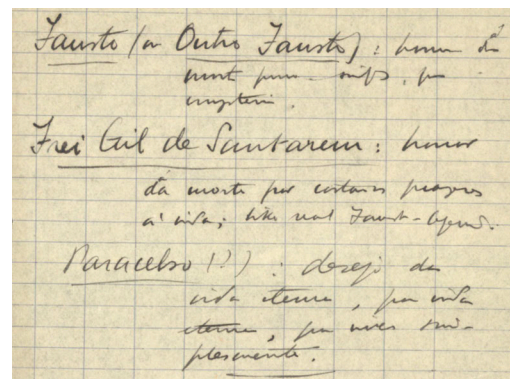 Fausto (ou Outro Fausto): horror da
morte pura-, por
mysterio.
Frei Gil de Santarem: horror
da morte por cortar os prazeres
á vida; like real Faust-legend.
Paracelso (?): desejo da
vida eterna, por vida
eterna, por viver sim-
plesmente.